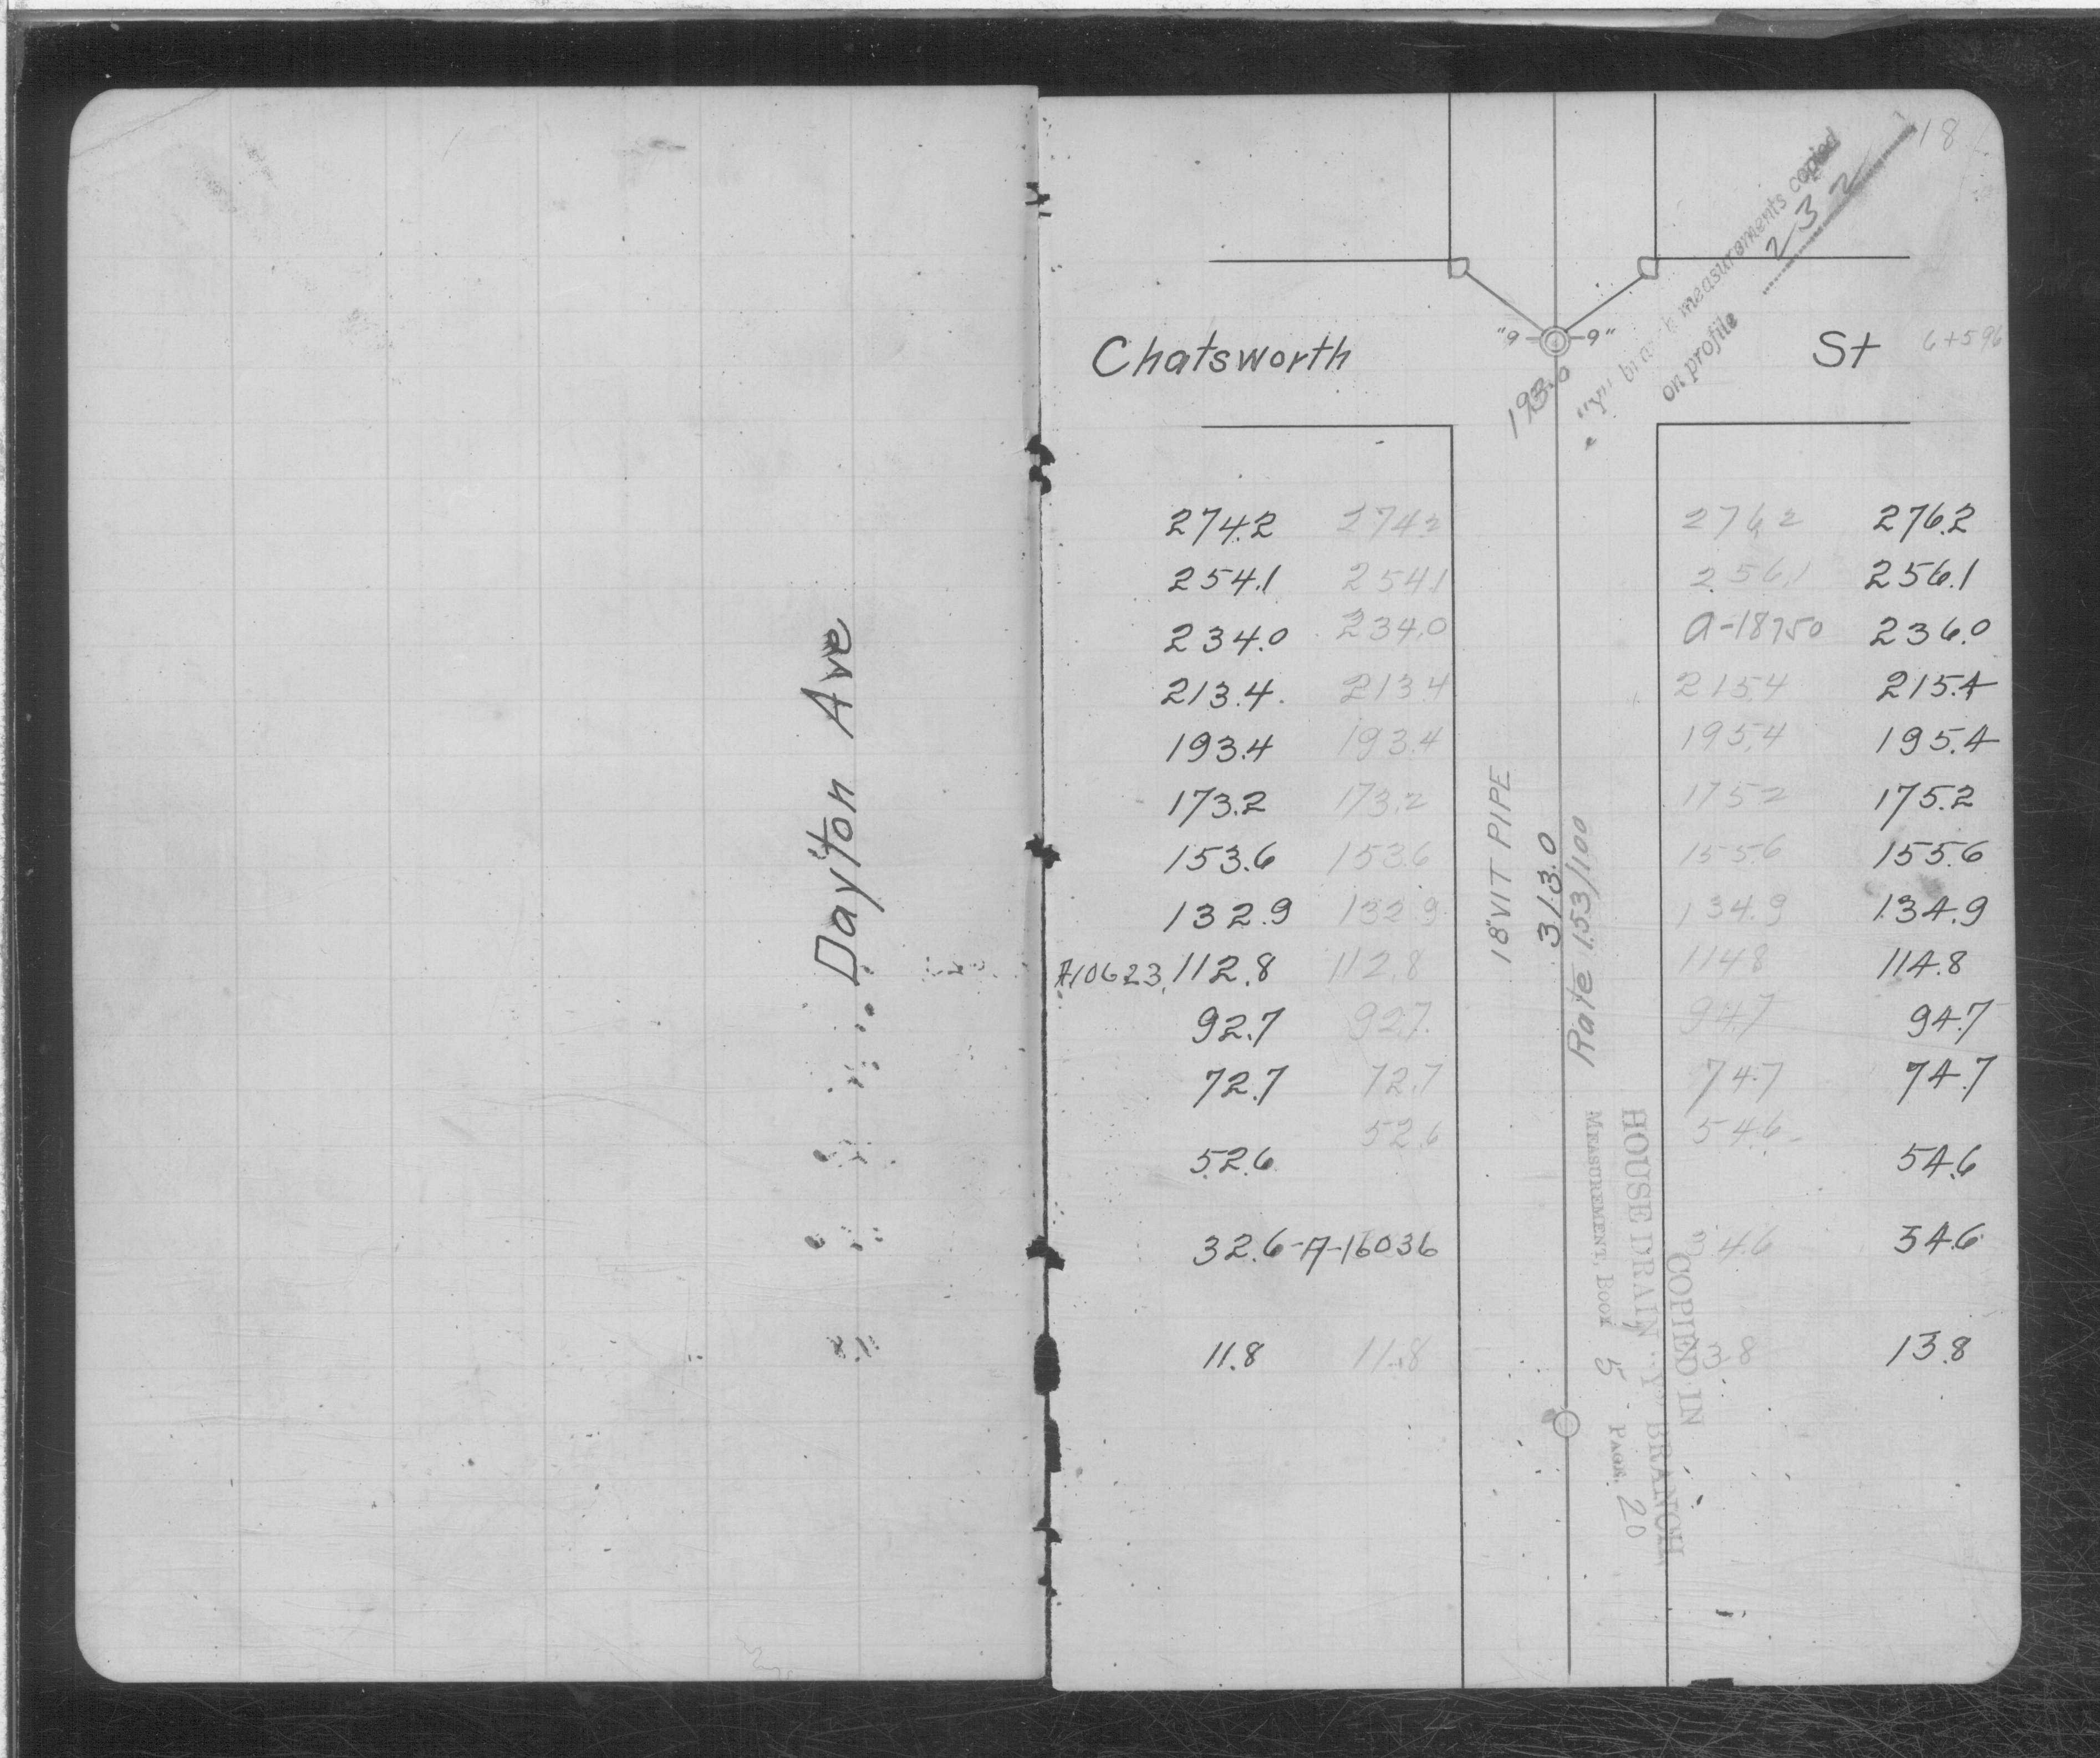 Dayton Ave
18
"Y" branch measurements copied
on profile 232
Chatsworth "9 9" St 6+596
193.0
274.2 274.2 276.2 276.2
254.1 254.1 256.1 256.1
234.0 234.0 a-18750 236.0
213.4 213.4 215.4 215.4
193.4 193.4 195.4 195.4
173.2 173.2 175.2 175.2
153.6 153.6 155.6 155.6
132.9 132.9 134.9 134.9
A10623 112.8 112.8 114.8 114.8
92.7 92.7 94.7 94.7
72.7 72.7 74.7 74.7
52.6 52.6 54.6 54.6
32.6-A-16036 34.6 34.6
11.8 11.8 13.8 13.8
18" VIT PIPE
313.0
Rate 1.53/100
COPIED IN
HOUSE DRAIN "Y" BRANCH
MEASUREMENT, BOOK 5 PAGE 20